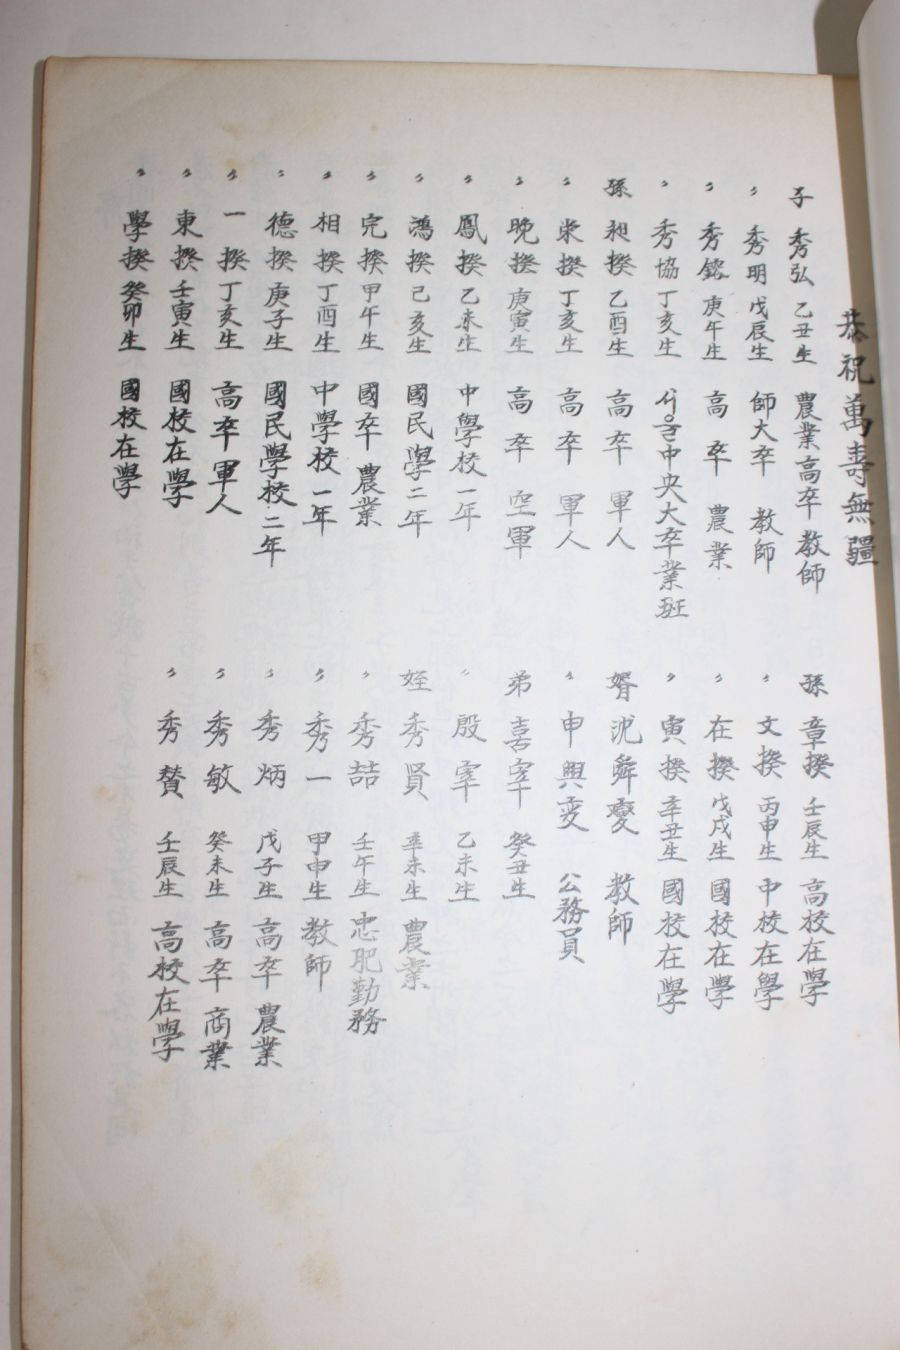 恭祝萬壽無疆
子 秀弘 乙丑生 農業高卒 教師
〃 秀明 戊辰生 師大卒 教師
〃 秀銘 庚午生 高卒 農業
〃 秀協 丁亥生 서울中央大卒業班
孫 昶揆 乙酉生 高卒 軍人
〃 榮揆 丁亥生 高卒 軍人
〃 晩揆 庚寅生 高卒 空軍
〃 鳳揆 乙未生 中學校一年
〃 鴻揆 己亥生 國民學二年
〃 完揆 甲午生 國卒 農業
〃 相揆 丁酉生 中學校一年
〃 德揆 庚子生 國民學校二年
〃 一揆 丁亥生 高卒軍人
〃 東揆 壬寅生 國校在學
〃 學揆 癸卯生 國校在學
孫 章揆 壬辰生 高校在學
〃 文揆 丙申生 中校在學
〃 在揆 戊戌生 國校在學
〃 寅揆 辛丑生 國校在學
婿 沈舜燮 教師
〃 申興雯 公務員
弟 喜宰 癸丑生
〃 殷宰 乙未生
姪 秀賢 辛未生 農業
〃 秀喆 壬午生 忠肥勤務
〃 秀一 甲申生 教師
〃 秀炳 戊子生 高卒 農業
〃 秀敏 癸未生 高卒 商業
〃 秀賛 壬辰生 高校在學